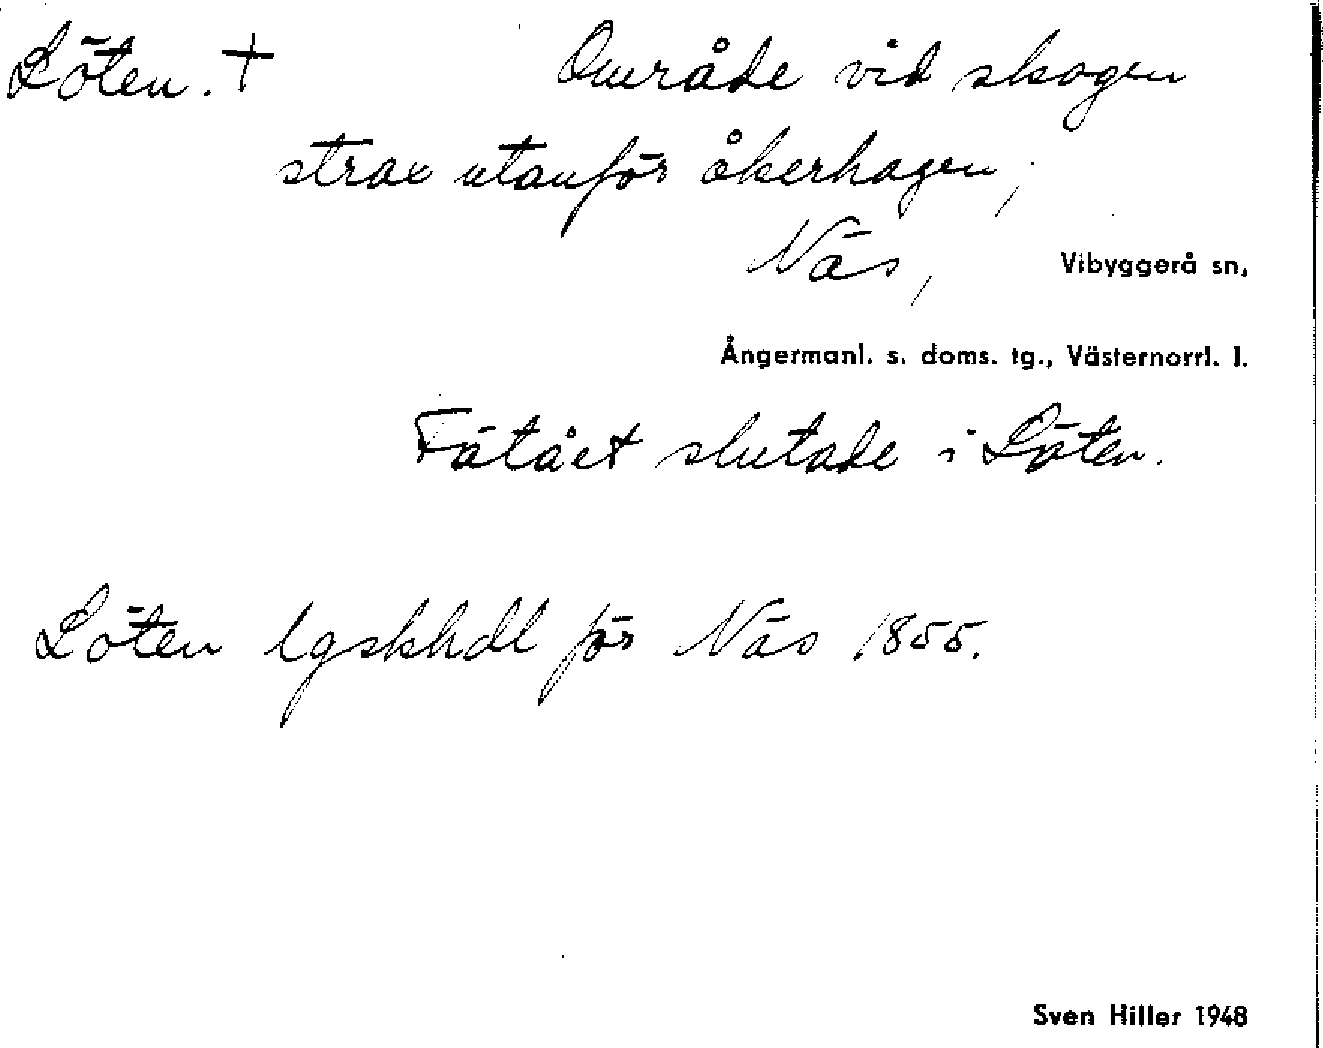 Löten. +          Område vid skogen
strax utanför åkerhagen;
Näs,          Vibyggerå sn,
Ångermanl. s. doms. tg., Västernorrl. l.
Fätået slutade i Löten.
Löten lgskhdl för Näs 1855.
Sven Hiller 1948